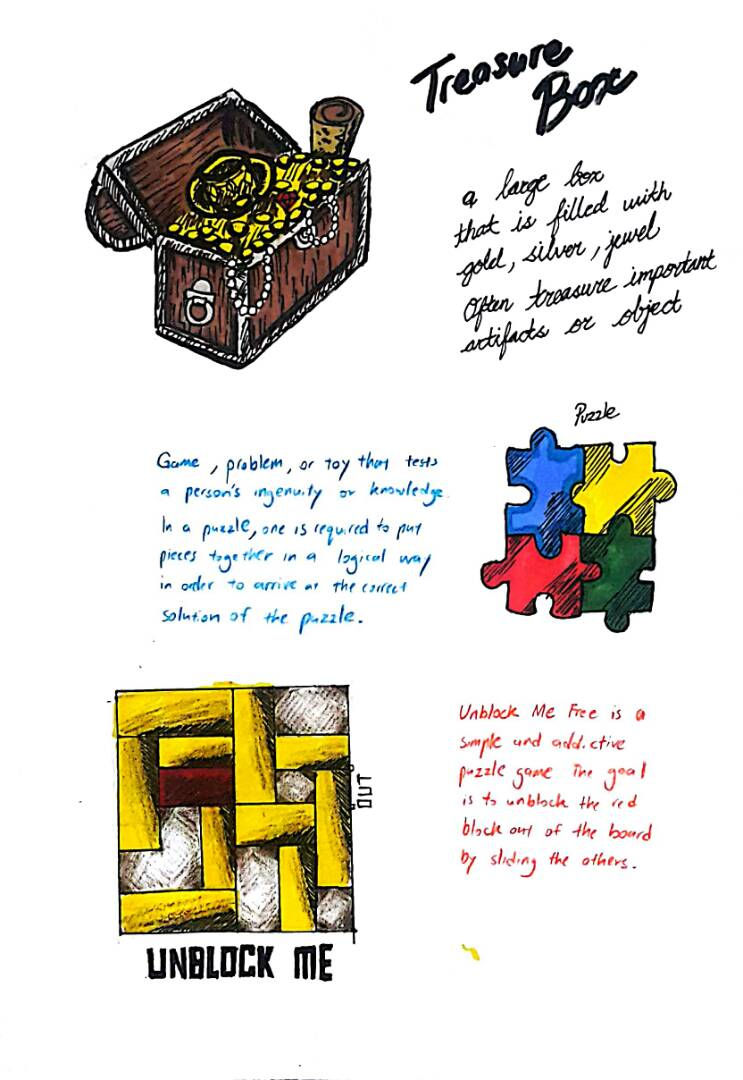 Treasure
Box
a large box
that is filled with
gold, silver, jewel
Often treasure important
artifacts or object
Puzzle
Game, problem, or toy that tests
a person's ingenuity or knowledge.
In a puzzle, one is required to put
pieces together in a logical way
in order to arrive at the correct
solution of the puzzle.
OUT
UNBLOCK ME
Unblock Me Free is a
simple and addictive
puzzle game The goal
is to unblock the red
block out of the board
by sliding the others.